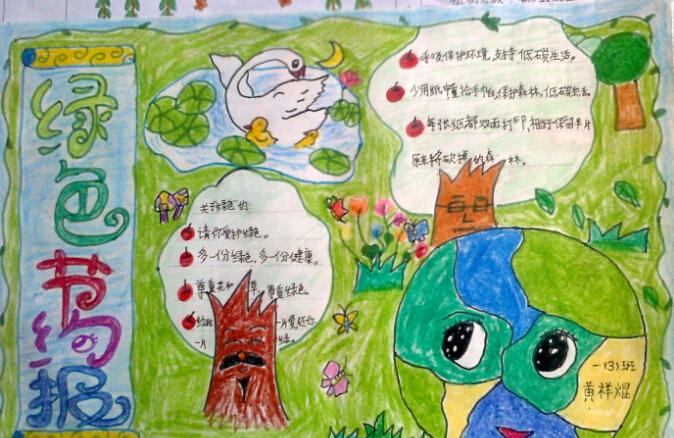 绿色节约报
呼吸保护环境,支持低碳生活。
少用纸巾,重拾手帕,保护森林,低碳生活。
每张纸都双面打印,相当于保留半片
原本将砍掉的森林。
关于绿色的:
请你爱护绿色。
多一份绿色,多一份健康。
尊重花和草,尊重绿色
给我一片
一片爱还你
绿。
一(3)班
黄祥焜